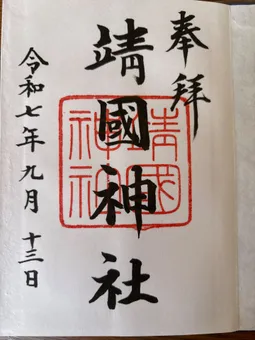 奉拝
靖國神社
靖國神社
令和七年九月十三日